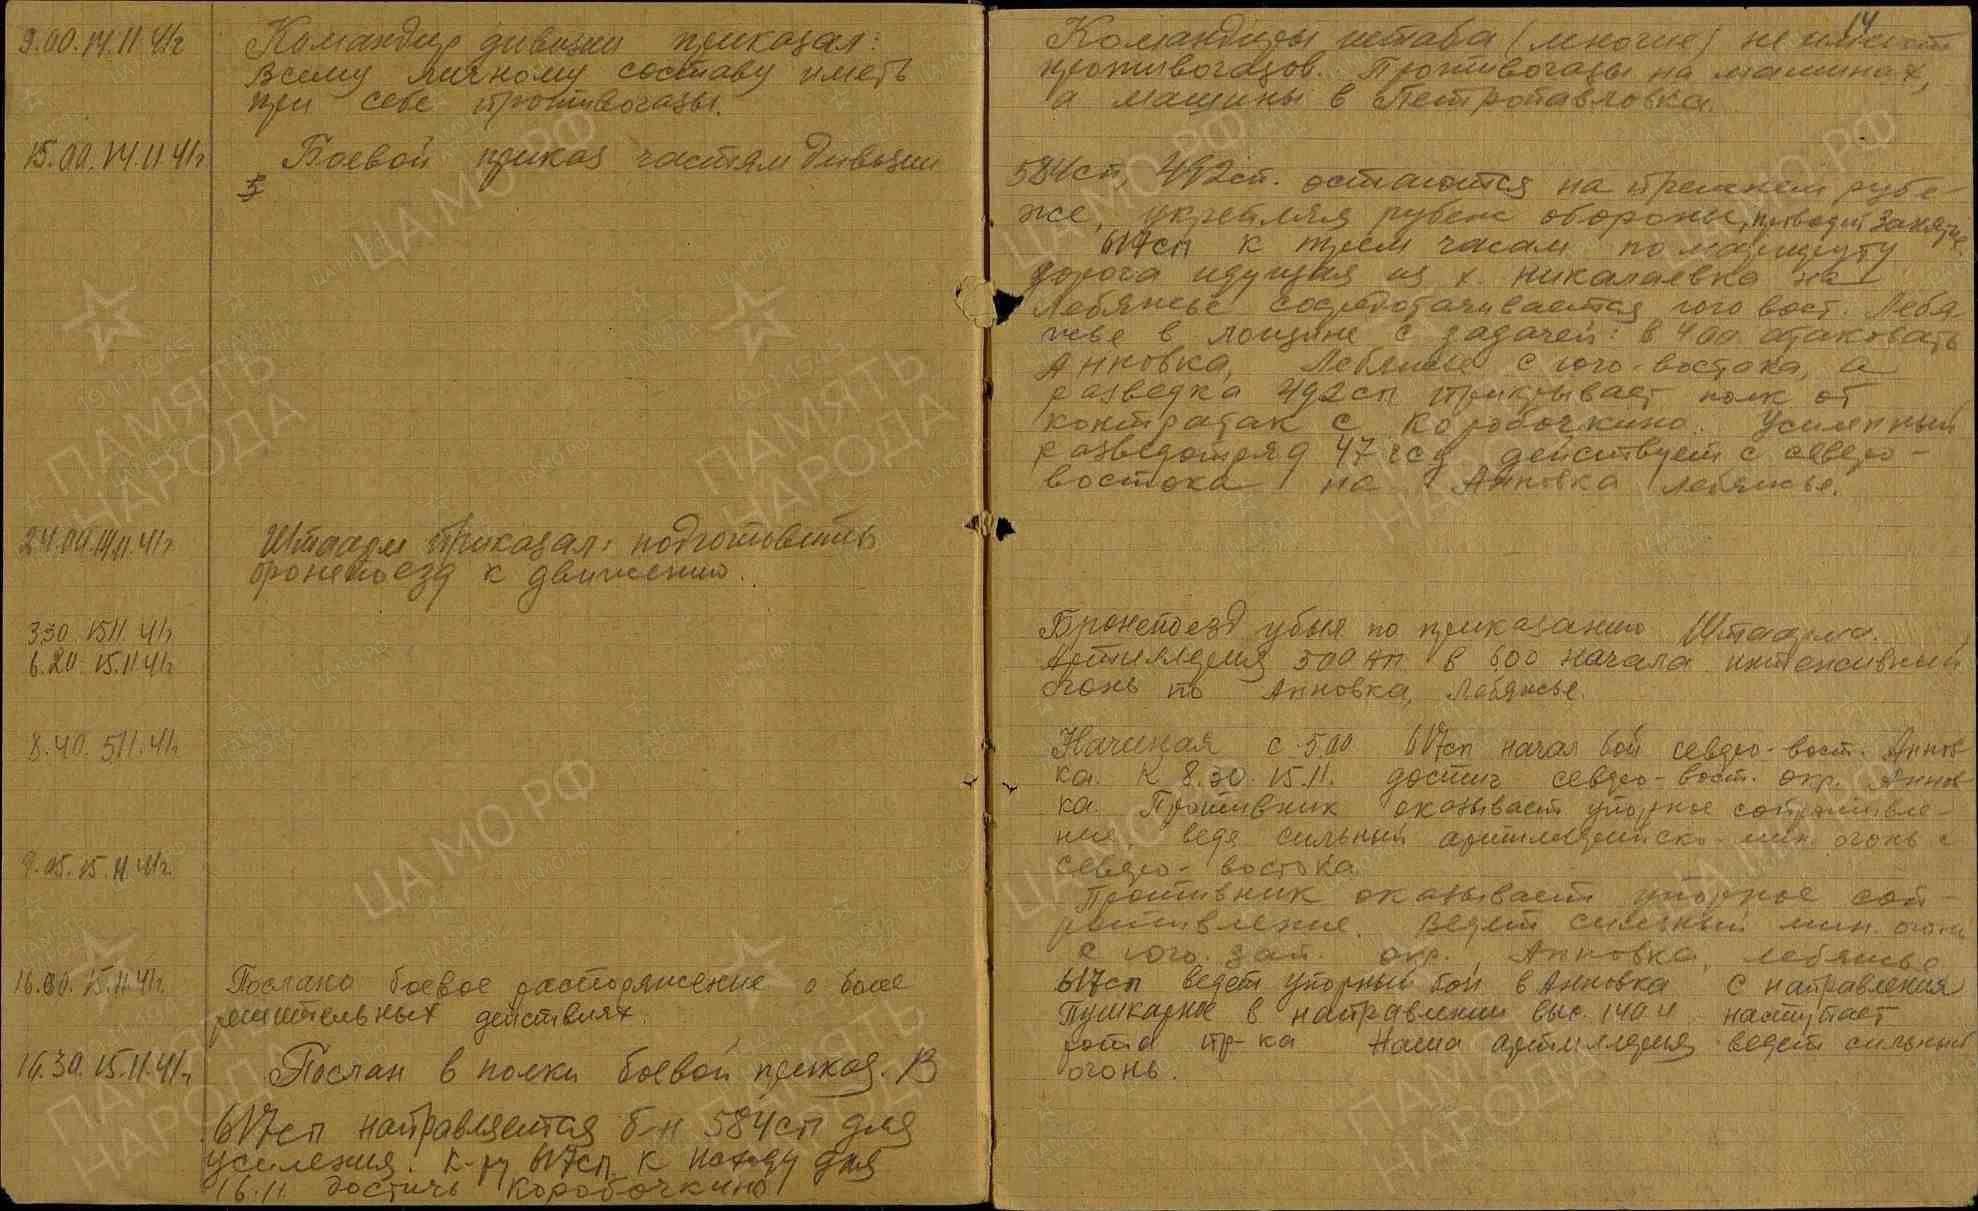 9.00.14.11.41г Командир дивизии приказал:
всему личному составу иметь
при себе противогазы.
15.00.14.11.41г Боевой приказ частям дивизии
24.00.14.11.41г Штаарм приказал: подготовить
бронепоезд к движению.
3.30. 15.11. 41г
6.20. 15.11 41г
8.40. 5.11.41г
9.05.15.11.41г.
16.00.15.11.41г. Послано боевое распоряжение о более
решительных действиях.
16.30.15.11.41г. Послан в полки боевой приказ. В
617сп направляется б-н 584сп для
усиления. К-ру 617сп к исходу дня
16.11. достичь Коробочкино
14
Командиры штаба (многие) не имеют
противогазов. Противогазы на машинах,
а машины в Петропавловка.
584сп, 492сп. остаются на прежнем рубе-
же, укрепляя рубеж обороны, проводят занятие.
617сп к трем часам по маршруту
дорога идущая из х. Николаевка на
Лебяжье сосредотачивается юго вост. Лебя
жье в лощине с задачей: в 4.00 атаковать
Анновка, Лебяжье с юго-востока, а
разведка 492сп прикрывает полк от
контратак с Коробочкино. Усиленный
разведотряд 47гсд действует с северо-
востока на Анновка Лебяжье.
Бронепоезд убыл по приказанию Штаарма.
Артиллерия 500 ап в 6.00 начала интенсивный
огонь по Анновка, Лебяжье.
Начиная с 5.00 617сп начал бой северо-вост. Аннов
ка. К 8.30. 15.11. достиг северо-вост. окр. Аннов
ка. Противник оказывает упорное сопротивле-
ние ведя сильный артиллерийско-мин. огонь с
северо-востока
Противник оказывает упорное соп-
ротивление. Ведет сильный мин. огонь
с юго. зап. окр. Анновка, Лебяжье
617сп ведет упорный бой в Анновка С направления
Пушкарное в направлении выс. 140.4 наступает
рота пр-ка Наша артиллерия ведет сильный
огонь.